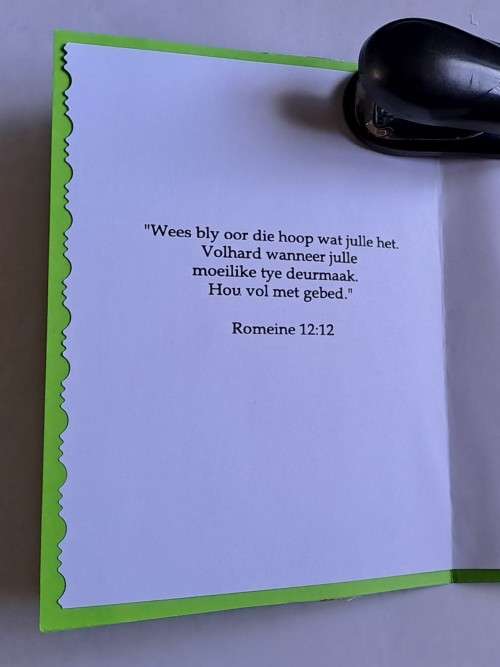 "Wees bly oor die hoop wat julle het.
Volhard wanneer julle
moeilike tye deurmaak.
Hou vol met gebed."
Romeine 12:12